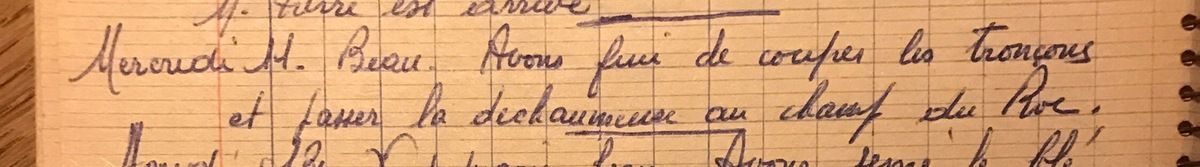 M. est arrivé
Mercredi 11. Beau. Avons fini de couper les tronçons
et passer la déchaumeuse au champ du Roc.
Avons semé le blé